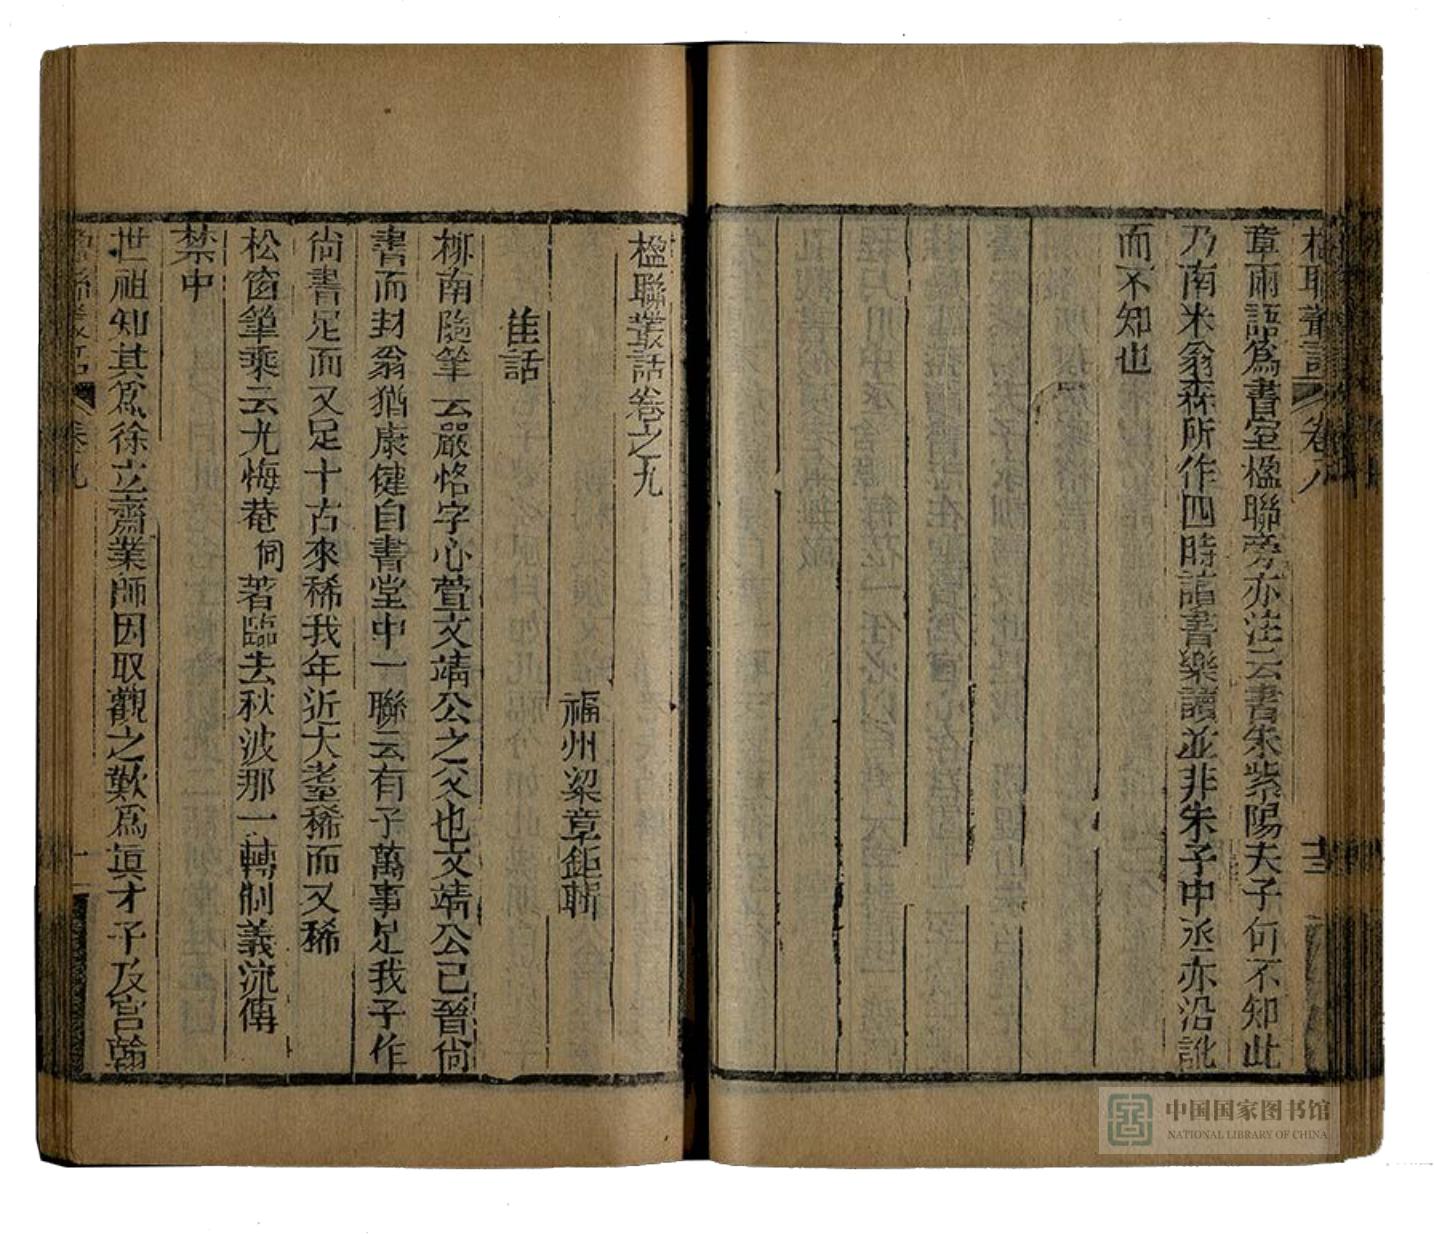 楹聯叢話 卷八 十三
章兩語爲書室楹聯旁亦注云書朱紫陽夫子何不知此
乃南宋翁森所作四時讀書樂讀並非朱子中丞亦沿訛
而不知也
楹聯叢話卷之九
福州梁章鉅輯
佳話
柳南隨筆云嚴恪字心萱文靖公之父也文靖公已晉尙
書而封翁猶康健自書堂中一聯云有子萬事足我子作
尙書足而又足十古來稀我年近大耋稀而又稀
松窗筆乘云尤悔菴侗著臨去秋波那一轉制義流傳
禁中
世祖知其爲徐立齋業師因取觀之歎爲眞才子及宮翰
楹聯叢話 卷九 一
中国国家图书馆
NATIONAL LIBRARY OF CHINA